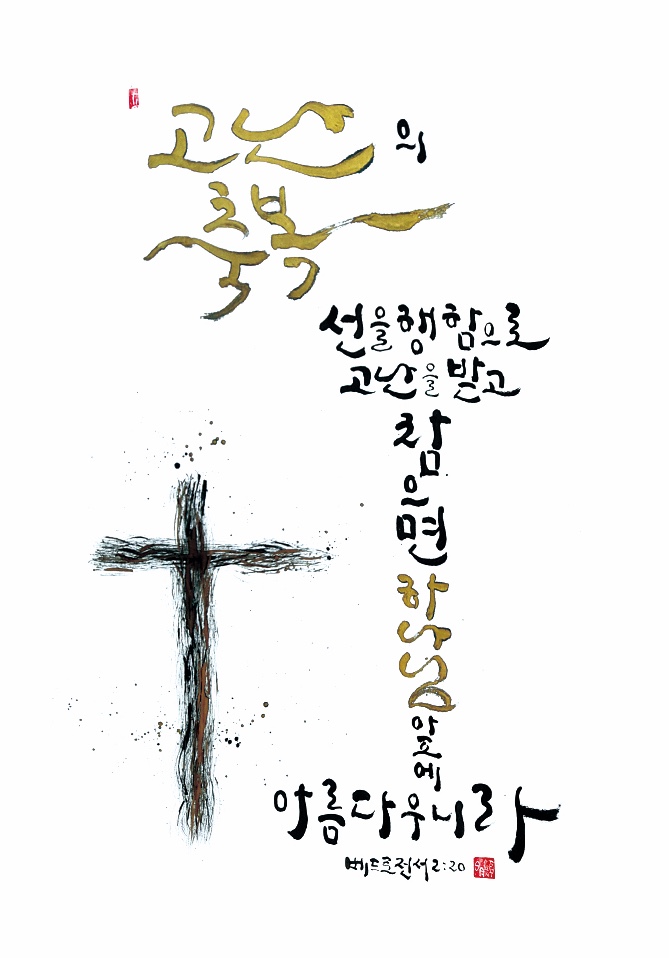 고난의
축복
선을행함으로
고난을받고
참
으
면
하
나
님
앞
에
아름다우니라
베드로전서2:20